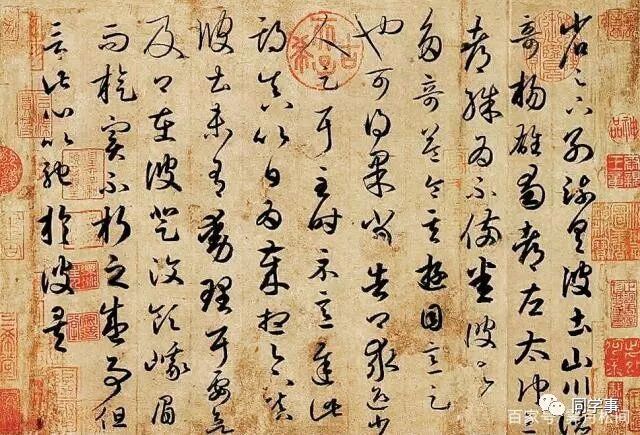 省足下別疏具彼土山川諸
奇楊雄蜀都左太沖三
都殊為不備悉彼故
多奇益令其遊目意足
也可得果當告卿求迎少
人足耳至時示意遲此
期真以日為歲想足下鎮
彼土未有動理耳要欲
及卿在彼登汶領峨眉
而旋實不朽之盛事但
言此心以馳於彼矣
同学事
百家号